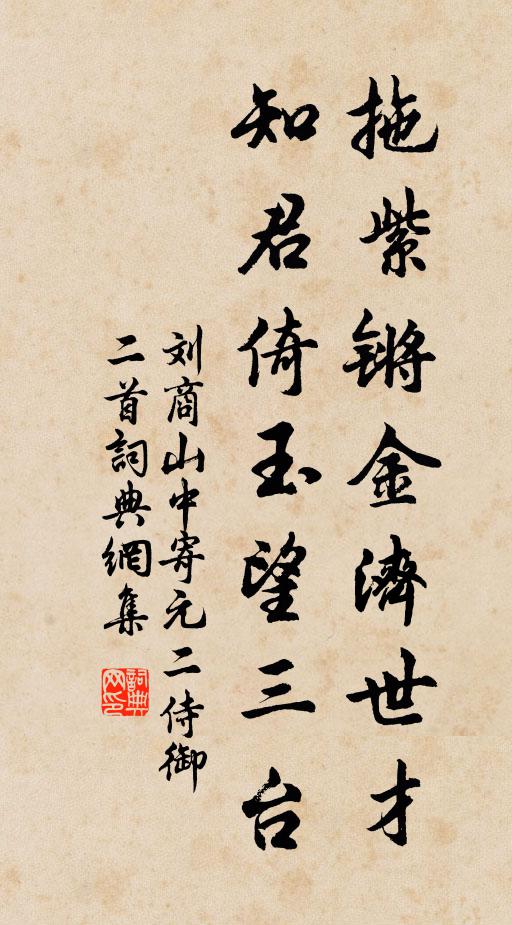 拖紫锵金濟世才
知君倚玉望三台
刘商山中寄元二侍御
二首詞典網集
詞典网印